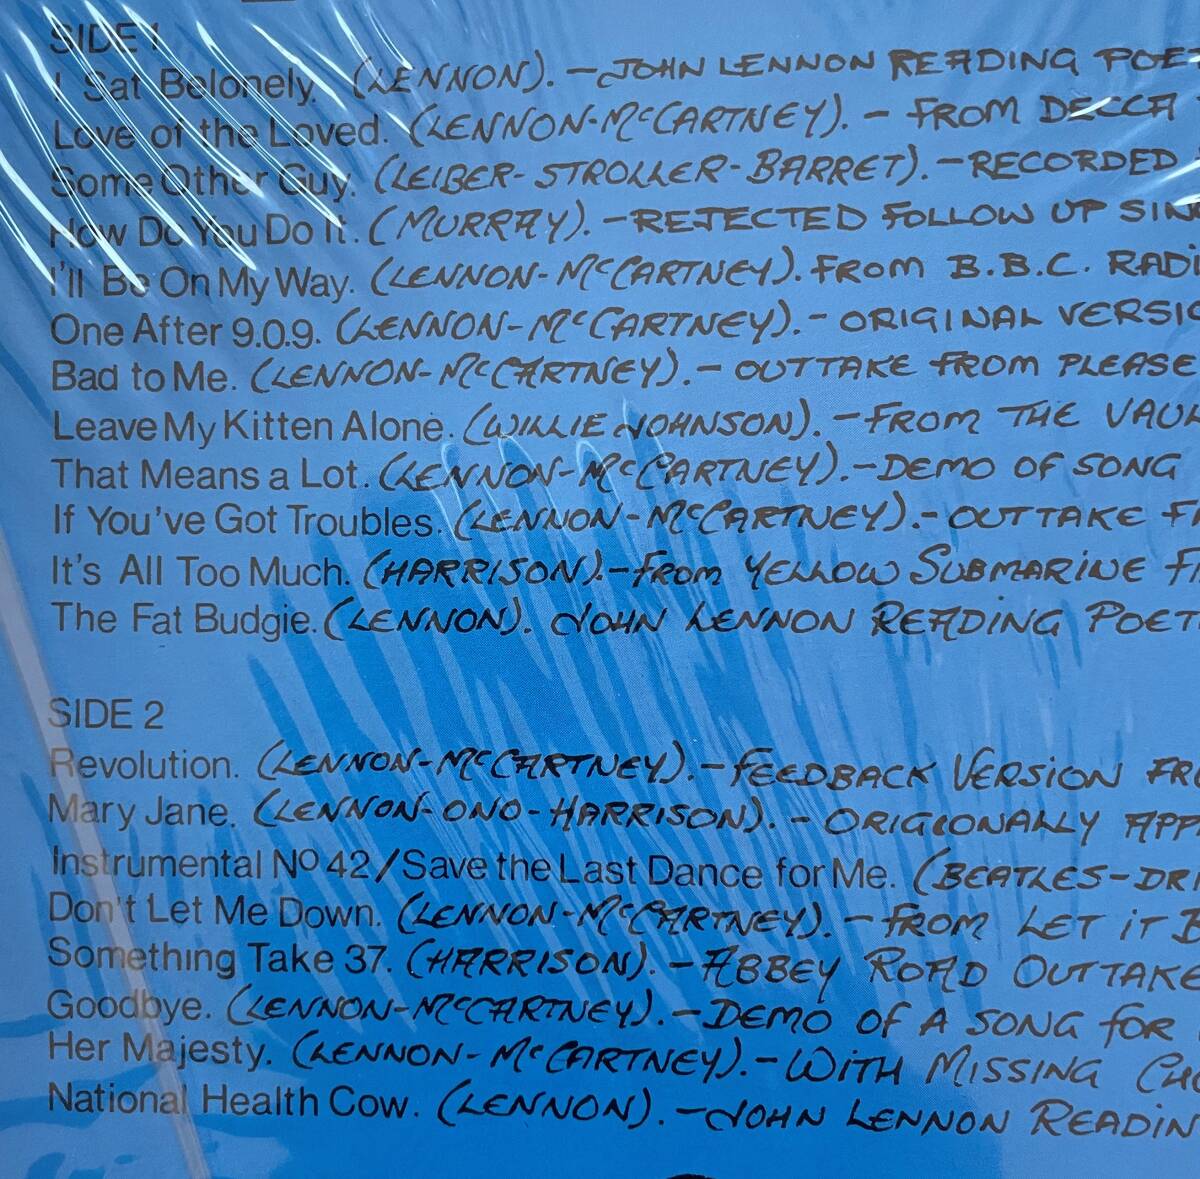 SIDE 1
I Sat Belonely. (LENNON). – JOHN LENNON READING POET
Love of the Loved. (LENNON-McCARTNEY). – FROM DECCA
Some Other Guy. (LEIBER-STROLLER-BARRET). – RECORDED
How Do You Do It. (MURRAY). – REJECTED FOLLOW UP SIN
I'll Be On My Way. (LENNON-McCARTNEY). FROM B.B.C. RADI
One After 9.0.9. (LENNON-McCARTNEY). – ORIGINAL VERSIO
Bad to Me. (LENNON-McCARTNEY). – OUTTAKE FROM PLEASE
Leave My Kitten Alone. (WILLIE JOHNSON). – FROM THE VAUL
That Means a Lot. (LENNON-McCARTNEY). – DEMO OF SONG
If You've Got Troubles. (LENNON-McCARTNEY). – OUTTAKE F
It's All Too Much. (HARRISON). – FROM YELLOW SUBMARINE FI
The Fat Budgie. (LENNON). JOHN LENNON READING POET
SIDE 2
Revolution. (LENNON-McCARTNEY). – FEEDBACK VERSION FR
Mary Jane. (LENNON-ONO-HARRISON). – ORIGIONALLY APP
Instrumental Nº 42/Save the Last Dance for Me. (BEATLES-DRI
Don't Let Me Down. (LENNON-McCARTNEY). – FROM LET IT B
Something Take 37. (HARRISON). – ABBEY ROAD OUTTAKE
Goodbye. (LENNON-McCARTNEY). – DEMO OF A SONG FOR
Her Majesty. (LENNON-McCARTNEY). – WITH MISSING CH
National Health Cow. (LENNON). – JOHN LENNON READIN